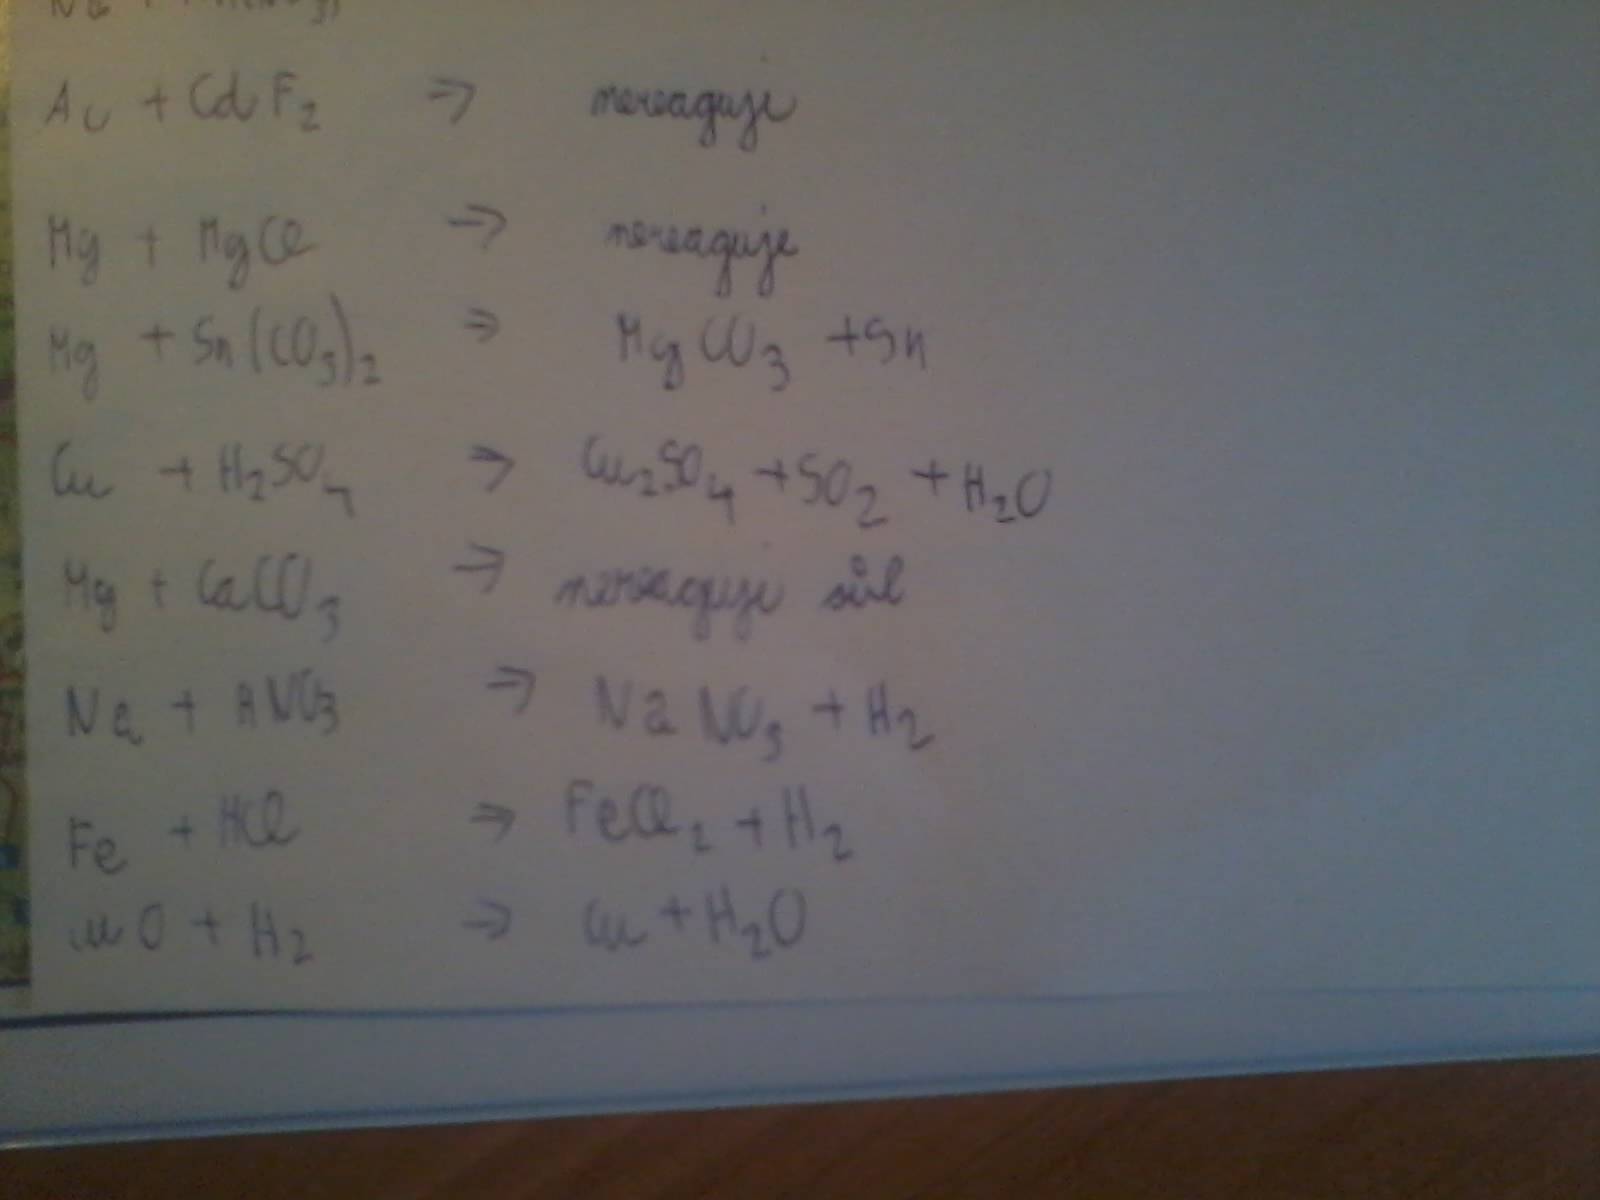 Au + CdF2 → nereaguje
Mg + MgCl → nereaguje
Mg + Sn(CO3)2 → MgCO3 + Sn
Cu + H2SO4 → Cu2SO4 + SO2 + H2O
Mg + CaCO3 → nereaguje sůl
Na + HNO3 → NaNO3 + H2
Fe + HCl → FeCl2 + H2
CuO + H2 → Cu + H2O